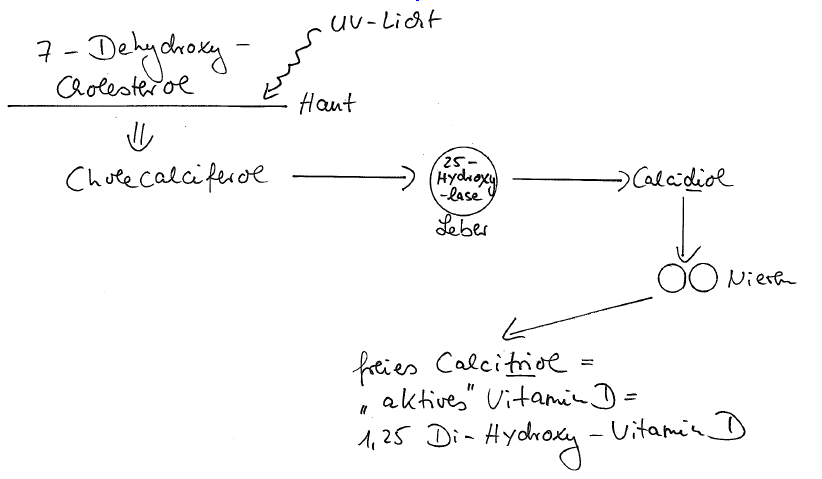 UV-Licht
7-Dehydroxy-
Cholesterol
Haut
Cholecalciferol
25-
Hydroxy
-lase
Leber
Calcidiol
Nieren
freies Calcitriol =
„aktives" Vitamin D =
1,25 Di-Hydroxy-Vitamin D